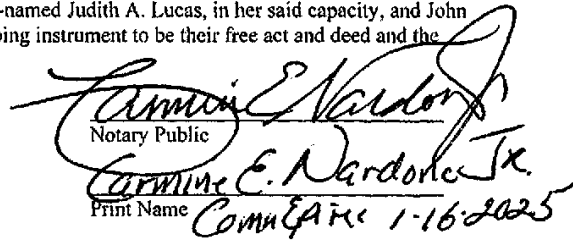 -named Judith A. Lucas, in her said capacity, and John
ing instrument to be their free act and deed and the
Carmine E Nardone Jr
Notary Public
Carmine E. Nardone Jr.
Print Name Comm Expires 1-16-2025